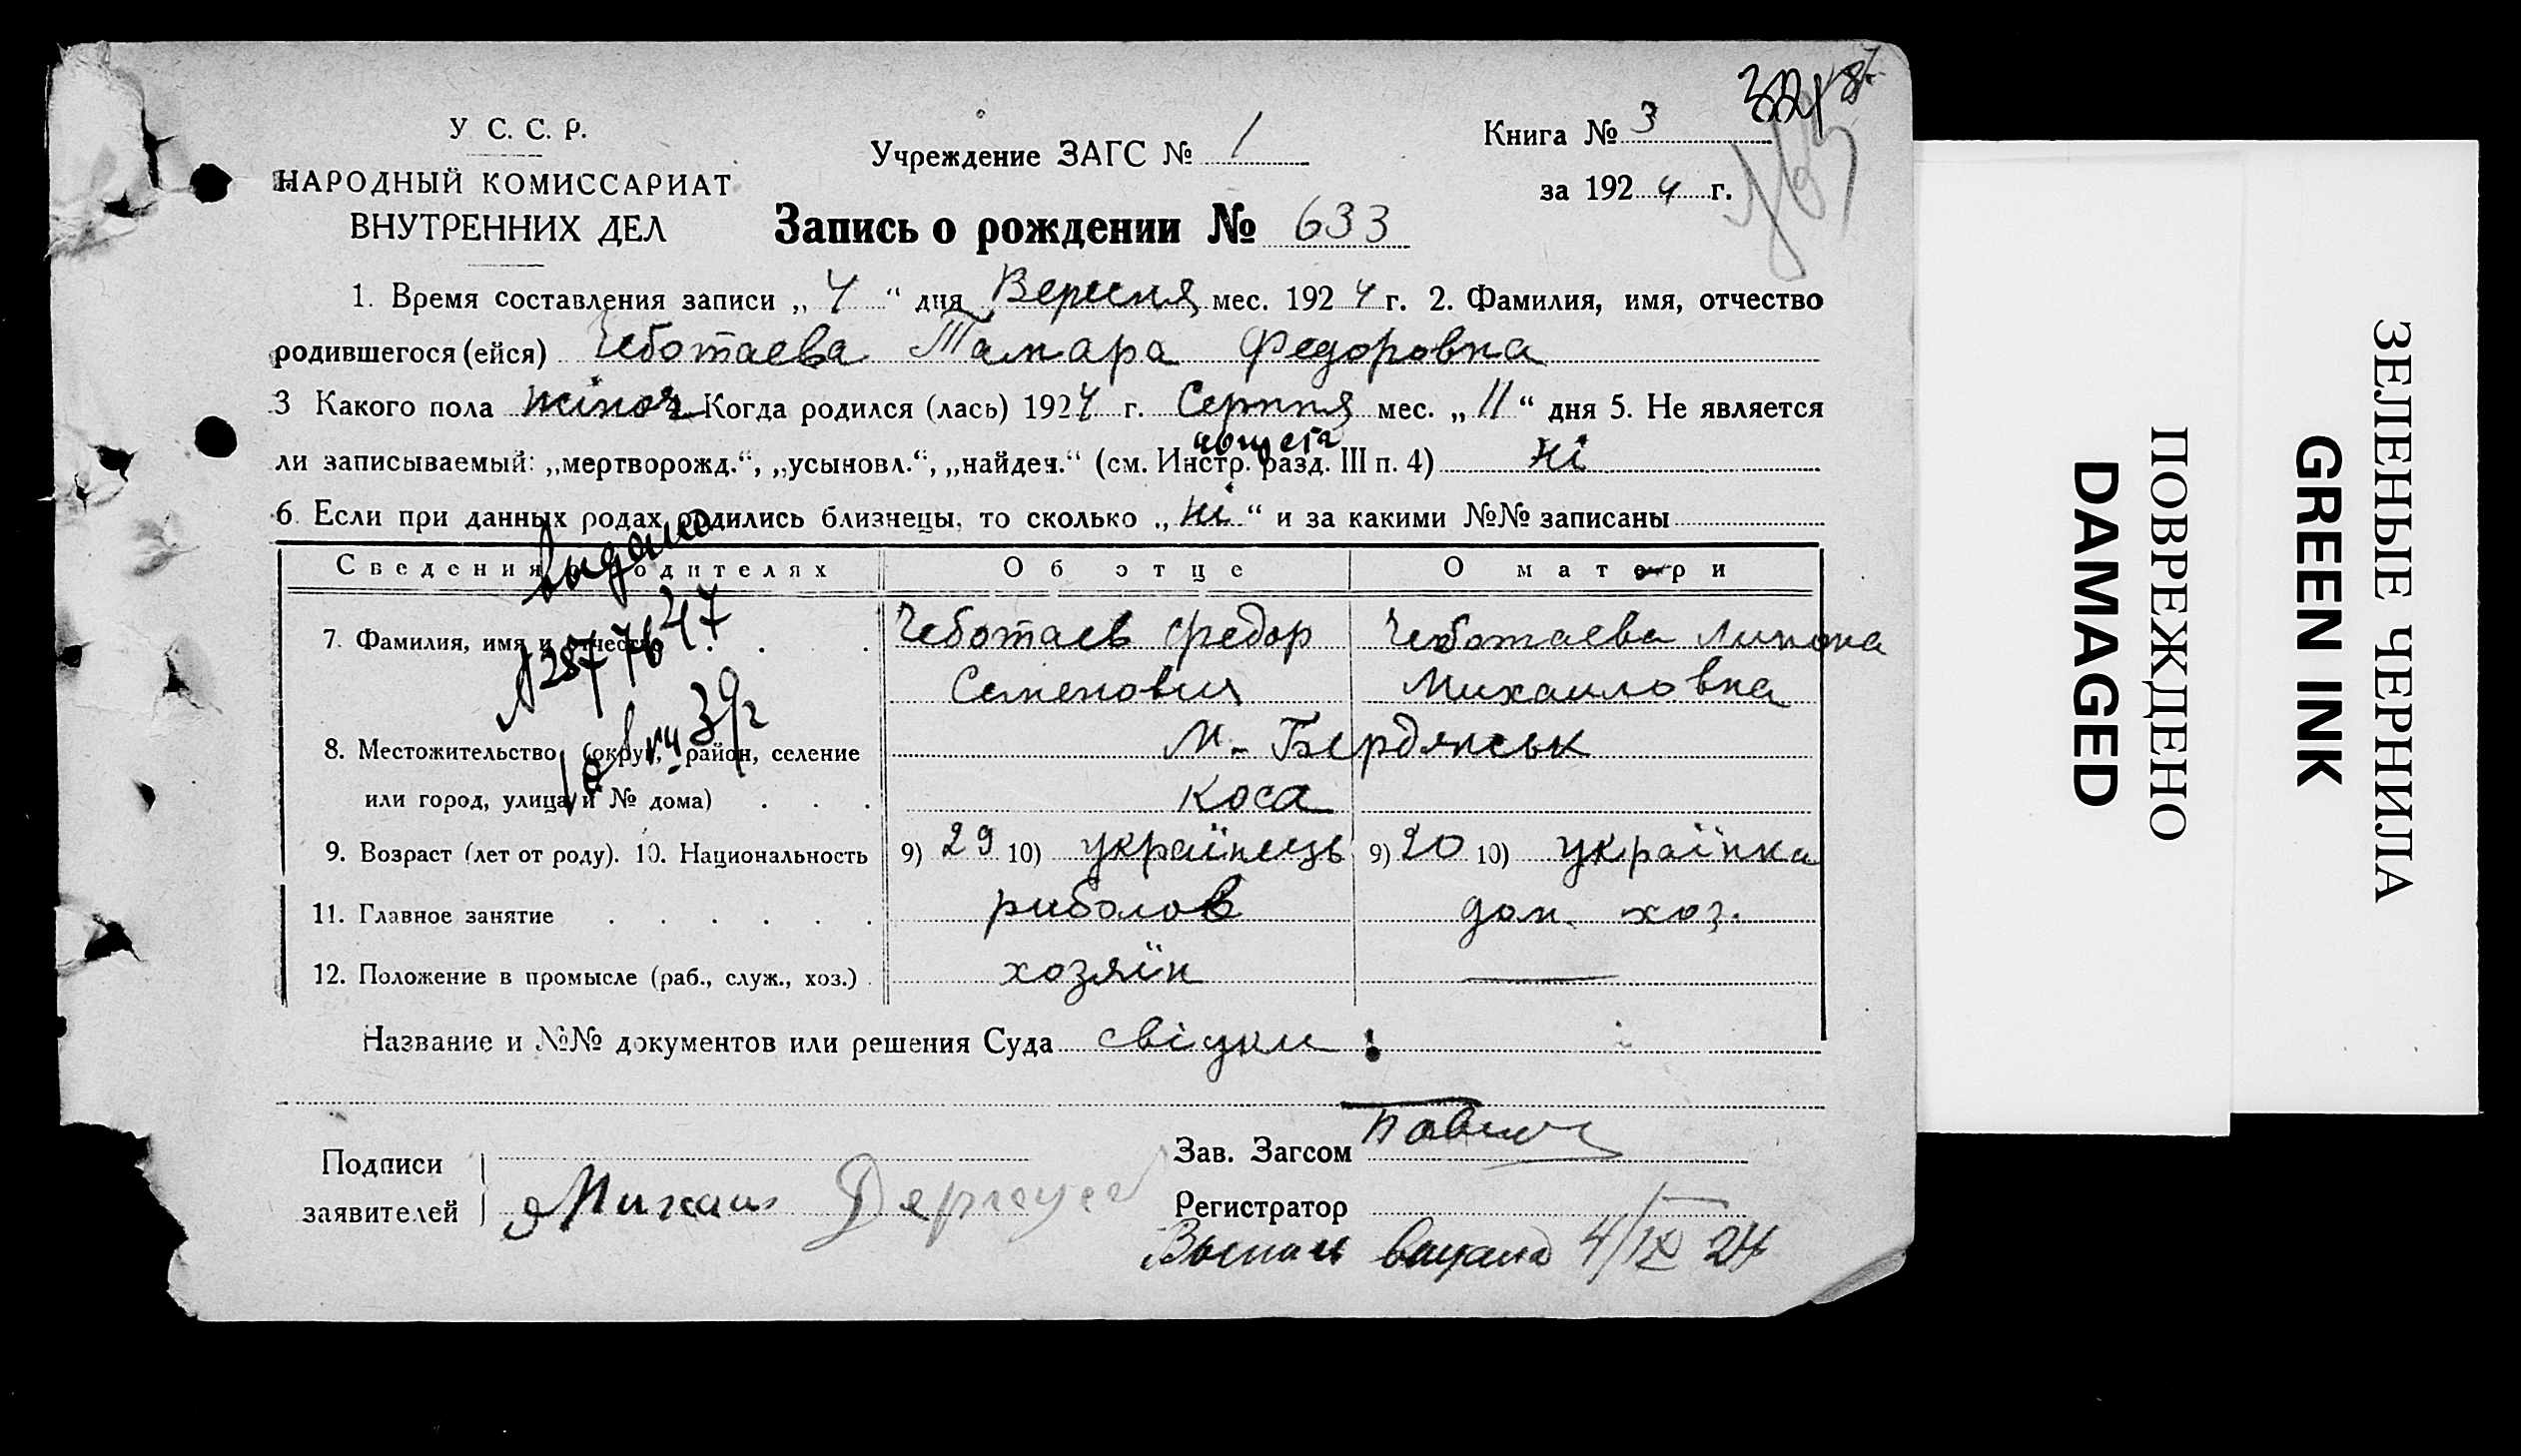 У С. С. Р.
НАРОДНЫЙ КОМИССАРИАТ
ВНУТРЕННИХ ДЕЛ
Учреждение ЗАГС № 1
Книга № 3
за 1924 г.
Запись о рождении № 633
1. Время составления записи „ 4 “ дня Вересня мес. 1924 г. 2. Фамилия, имя, отчество
родившегося (ейся) Чеботаева Тамара Федоровна
3 Какого пола жіноч Когда родился (лась) 1924 г. Серпня мес. „ 11 “ дня 5. Не является
августа
ли записываемый: „мертворожд.“, „усыновл.“, „найден.“ (см. Инстр. разд. III п. 4) ні
6. Если при данных родах родились близнецы, то сколько „ ні “ и за какими №№ записаны
выдано
Сведения о родителях Об отце О матери
7. Фамилия, имя и отчество Чеботаев Федор Чеботаева
Семенович Михаиловна
39г
8. Местожительство (округ, район, селение М. Бердянськ
или город, улица и № дома) Коса
9. Возраст (лет от роду). 10. Национальность 9) 29 10) українець 9) 20 10) українка
11. Главное занятие риболов дом. хоз.
12. Положение в промысле (раб., служ., хоз.) хозяїн —
Название и №№ документов или решения Суда свідки
Подписи
заявителей Михаил
Зав. Загсом
Регистратор
4/IX 24
ПОВРЕЖДЕНО
DAMAGED
ЗЕЛЕНЫЕ ЧЕРНИЛА
GREEN INK